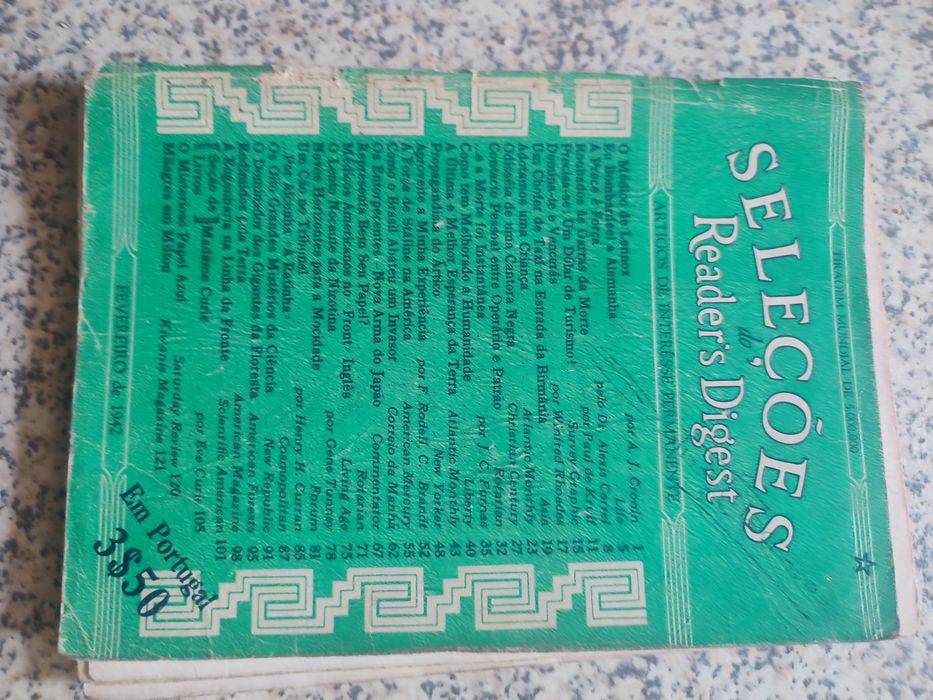 TIRAGEM MUNDIAL DE 5.000.000
SELEÇÕES
do
Reader's Digest
ARTIGOS DE INTERÊSSE PERMANENTE
O Médico de Lennox por A. J. Cronin 1
Eu Bombardeei a Alemanha Life 5
A Prece é Fôrça pelo Dr. Alexis Carrel 8
Roubados às Garras da Morte por Paul de Kruif 11
Precisa-se: Um Dólar de Turismo! Survey Graphic 15
Domina-te e Vencerás por Winfred Rhoades 17
Um Chofer de Taxi na Estrada da Birmânia Asia 19
Adotamos uma Criança Atlantic Monthly 23
Odisséia de uma Cantora Negra Christian Century 27
Contacto Pessoal entre Operário e Patrão Rotarian 32
...e a Morte foi Instantânea por J. C. Furnas 35
Como tem Melhorado a Humanidade Liberty 40
A Última e Melhor Esperança da Terra Atlantic Monthly 43
Propaganda do Ártico New Yorker 48
Aproveite a Minha Experiência por F. Rodell, C. Brandt 52
A Fôrça de Stáline na América American Mercury 55
Como o Brasil Abateu um Invasor Correio da Manhã 62
Os Entorpecentes - Nova Arma do Japão Commentator 67
Representa Bem Seu Papel? Rotarian 71
Médicos Americanos no Front Inglês Living Age 75
O Efeito Nocivo da Nicotina por Gene Tunney 78
Novos Horizontes para a Mocidade Forum 81
Um Leão no Tribunal por Henry H. Curran 85
Por Abelha - A Rainha Cosmopolitan 87
Os Oito Grandes Mistérios da Ciência New Republic 91
O Dominador dos Gigantes da Floresta American Forests 95
Redimidos pela Terra American Magazine 98
A Engenharia na Linha da Frente Scientific American 101
Seção de Livros Madame Curie por Eve Curie 103
O Misterioso Papel Azul Saturday Review 120
Milagres em Milton Kiwanis Magazine 121
FEVEREIRO de 1942
Em Portugal
3$50